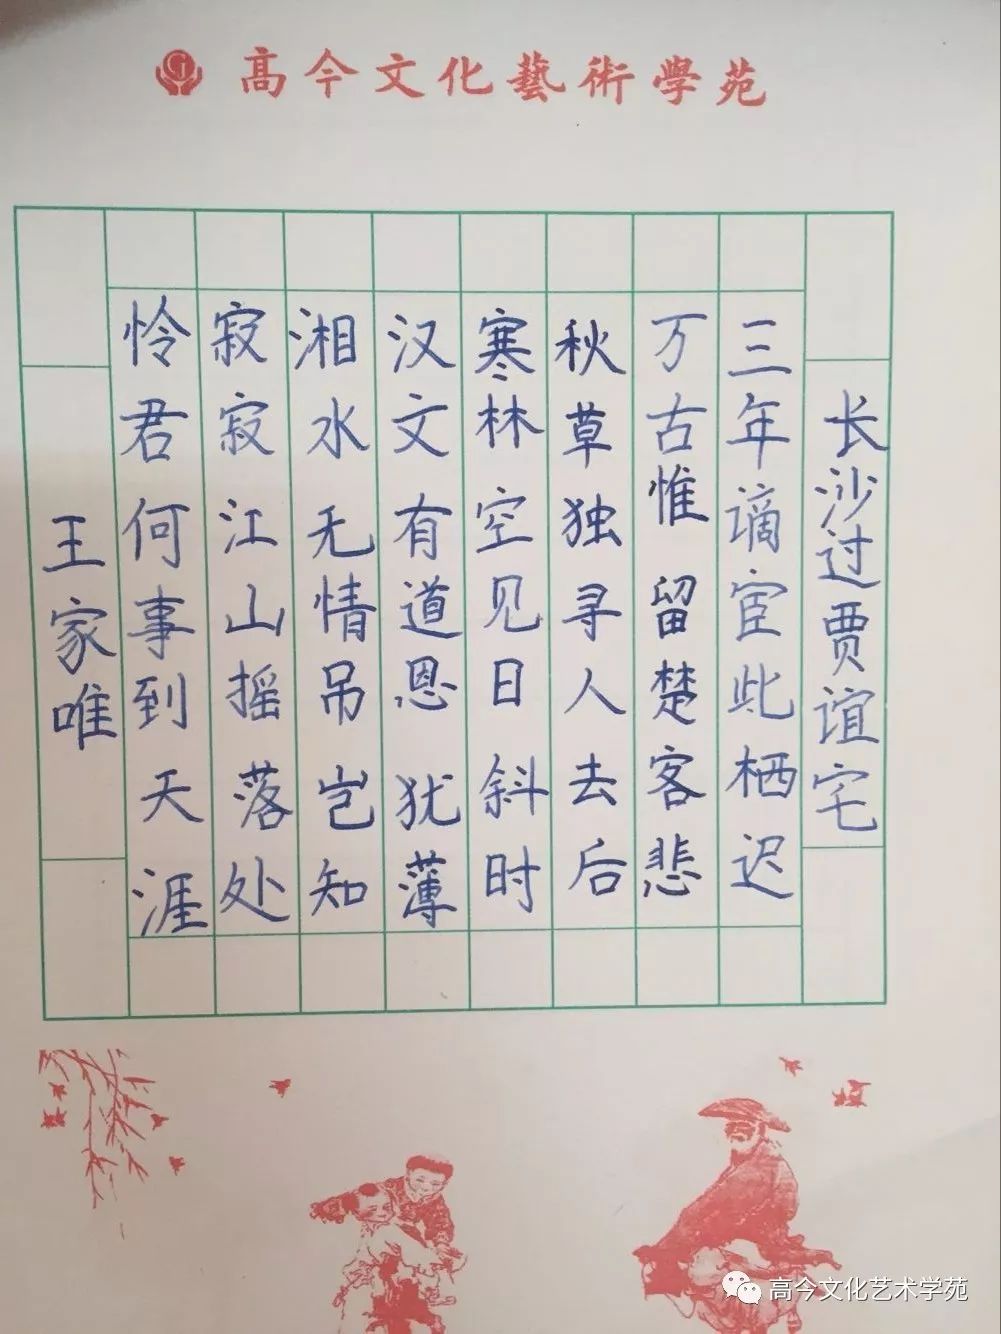 高今文化藝術學苑
长沙过贾谊宅
三年谪宦此栖迟
万古惟留楚客悲
秋草独寻人去后
寒林空见日斜时
汉文有道恩犹薄
湘水无情吊岂知
寂寂江山摇落处
怜君何事到天涯
王家唯
高今文化艺术学苑